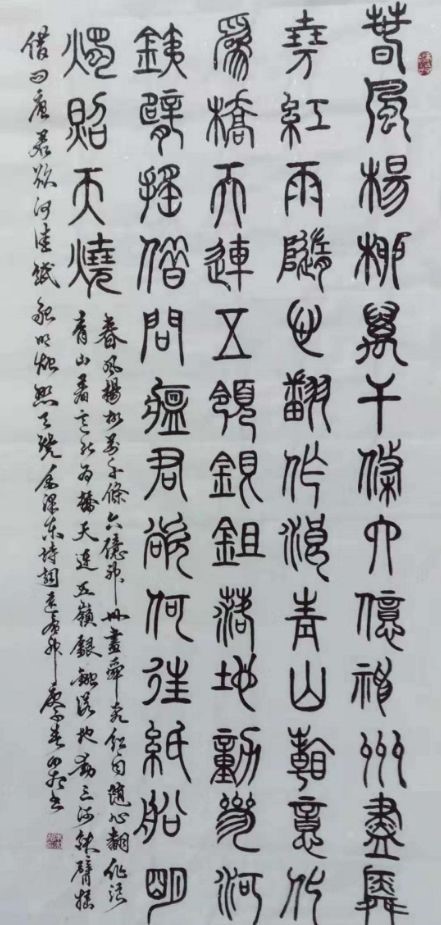 春風楊柳萬千條六億神州盡舜
堯紅雨隨心翻作浪青山意化
為橋天連五領銀鉏落地動三河
銕臂搖借問瘟君欲何往紙船明
燭照天燒
春風楊柳萬千條六億神州盡舜堯紅雨随心翻作浪
青山着意化为橋天連五嶺銀鋤落地動三河鉄臂搖
借问瘟君欲何往紙船明烛照天燒毛澤東詩詞送瘟神書